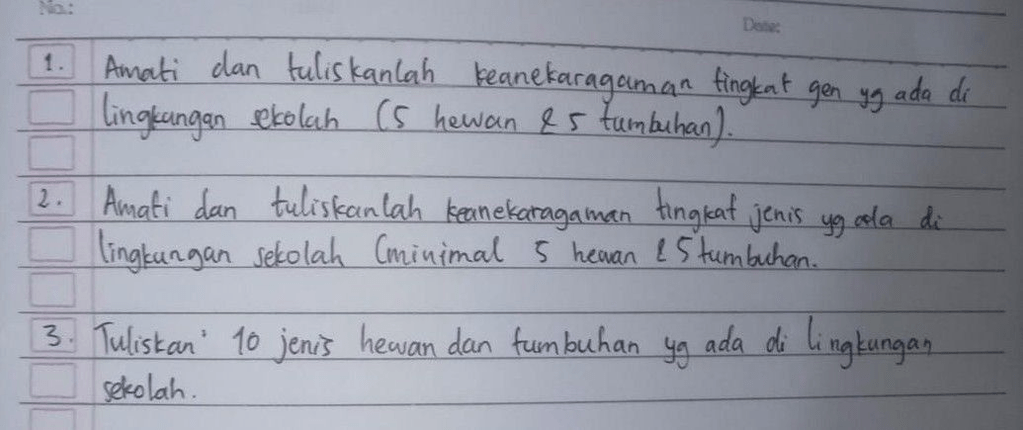 No.:
Date:
1. Amati dan tuliskanlah keanekaragaman tingkat gen yg ada di
lingkungan sekolah (5 hewan & 5 tumbuhan).
2. Amati dan tuliskanlah keanekaragaman tingkat jenis yg ada di
lingkungan sekolah (minimal 5 hewan & 5 tumbuhan.
3. Tuliskan' 10 jenis hewan dan tumbuhan yg ada di lingkungan
sekolah.